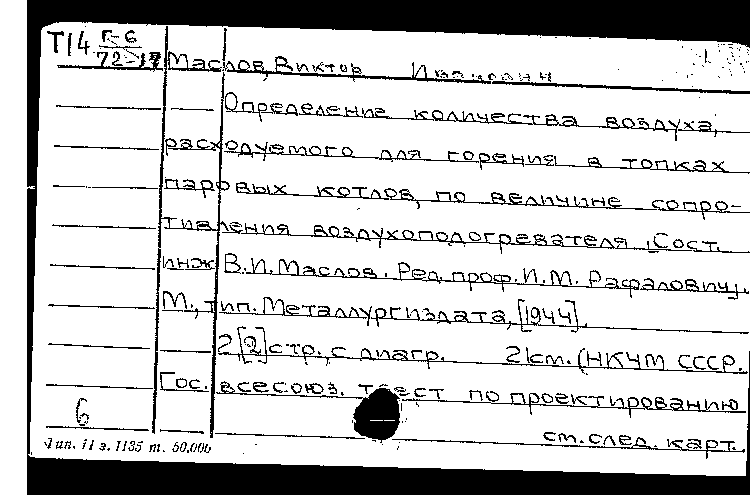 Т14 Г-6
72>17
Маслов, Виктор Иванович
Определение количества воздуха,
расходуемого для горения в топках
паровых котлов, по величине сопро-
тивления воздухоподогревателя. [Сост.
инж. В.И. Маслов. Ред. проф. И.М. Рафалович].
М., тип. Металлургиздата, [1944].
2[2] стр., с диагр. 21 см. (НКЧМ СССР.
Гос. всесоюз. трест по проектированию
6
см. след. карт.
Тип. 11 з. 1135 т. 50,000